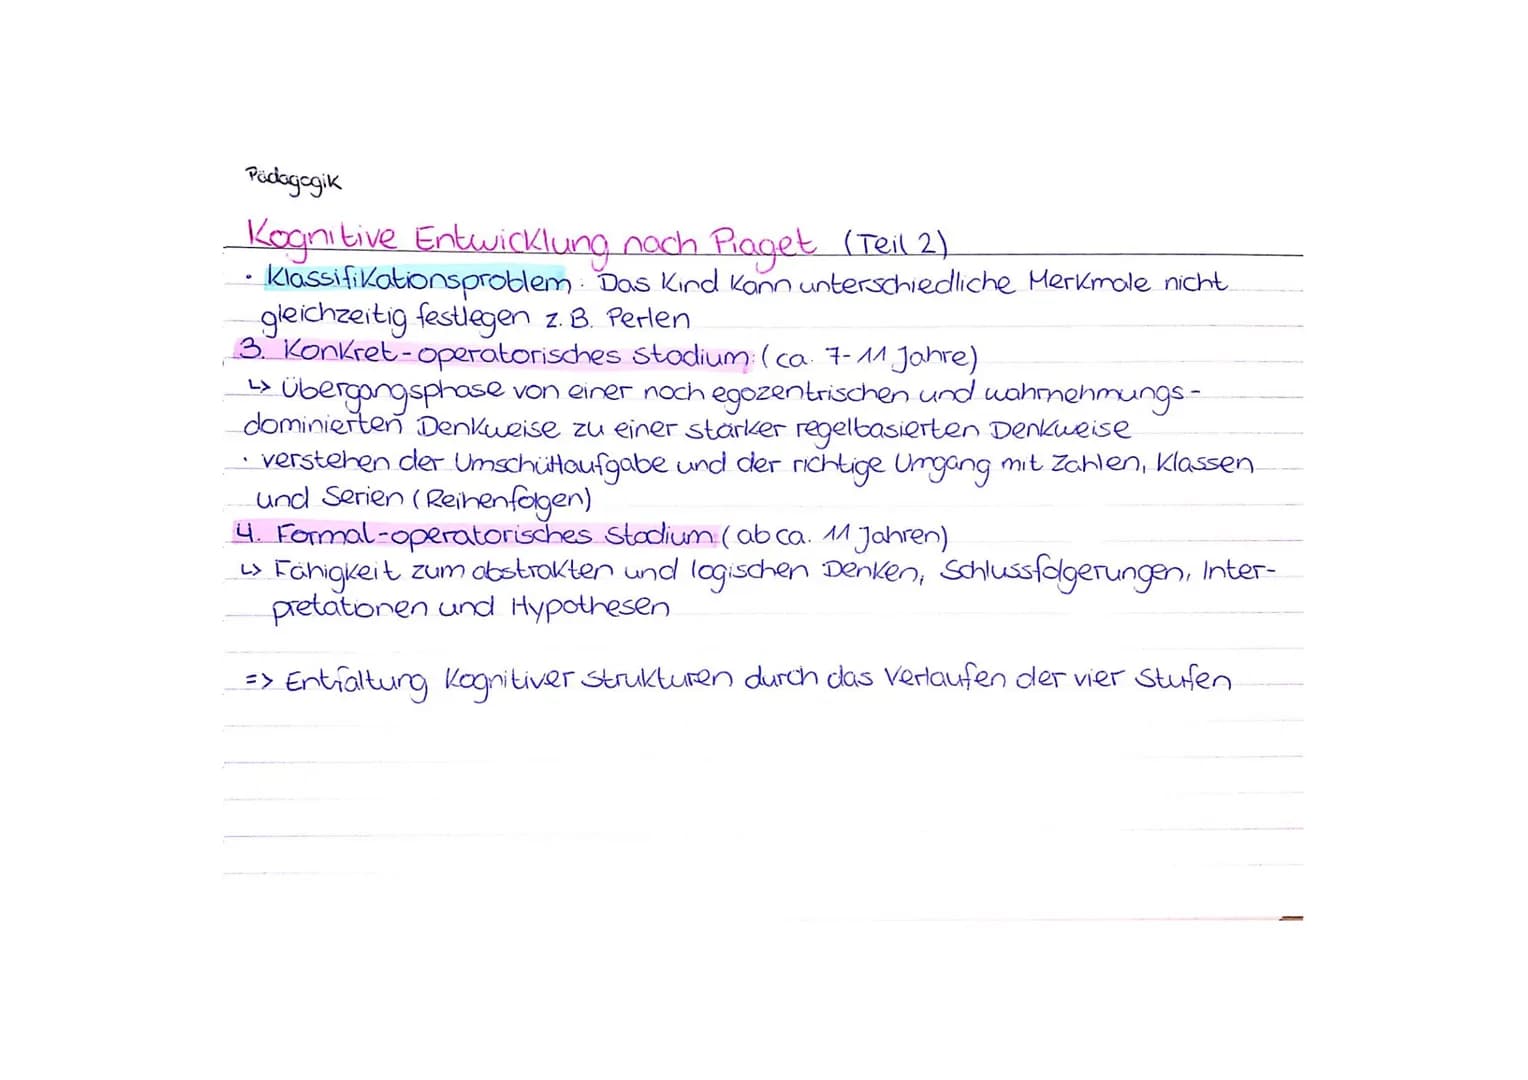 Pädagogik
Kognitive Entwicklung nach Piaget (Teil 2)
· Klassifikationsproblem: Das Kind kann unterschiedliche Merkmale nicht
gleichzeitig festlegen z. B. Perlen
3. Konkret-operatorisches Stadium: (ca. 7-11 Jahre)
↳ Übergangsphase von einer noch egozentrischen und wahrnehmungs-
dominierten Denkweise zu einer stärker regelbasierten Denkweise
· verstehen der Umschüttaufgabe und der richtige Umgang mit Zahlen, Klassen
und Serien (Reihenfolgen)
4. Formal-operatorisches Stadium (ab ca. 11 Jahren)
↳ Fähigkeit zum abstrakten und logischen Denken, Schlussfolgerungen, Inter-
pretationen und Hypothesen
=> Entfaltung kognitiver Strukturen durch das Verlaufen der vier Stufen